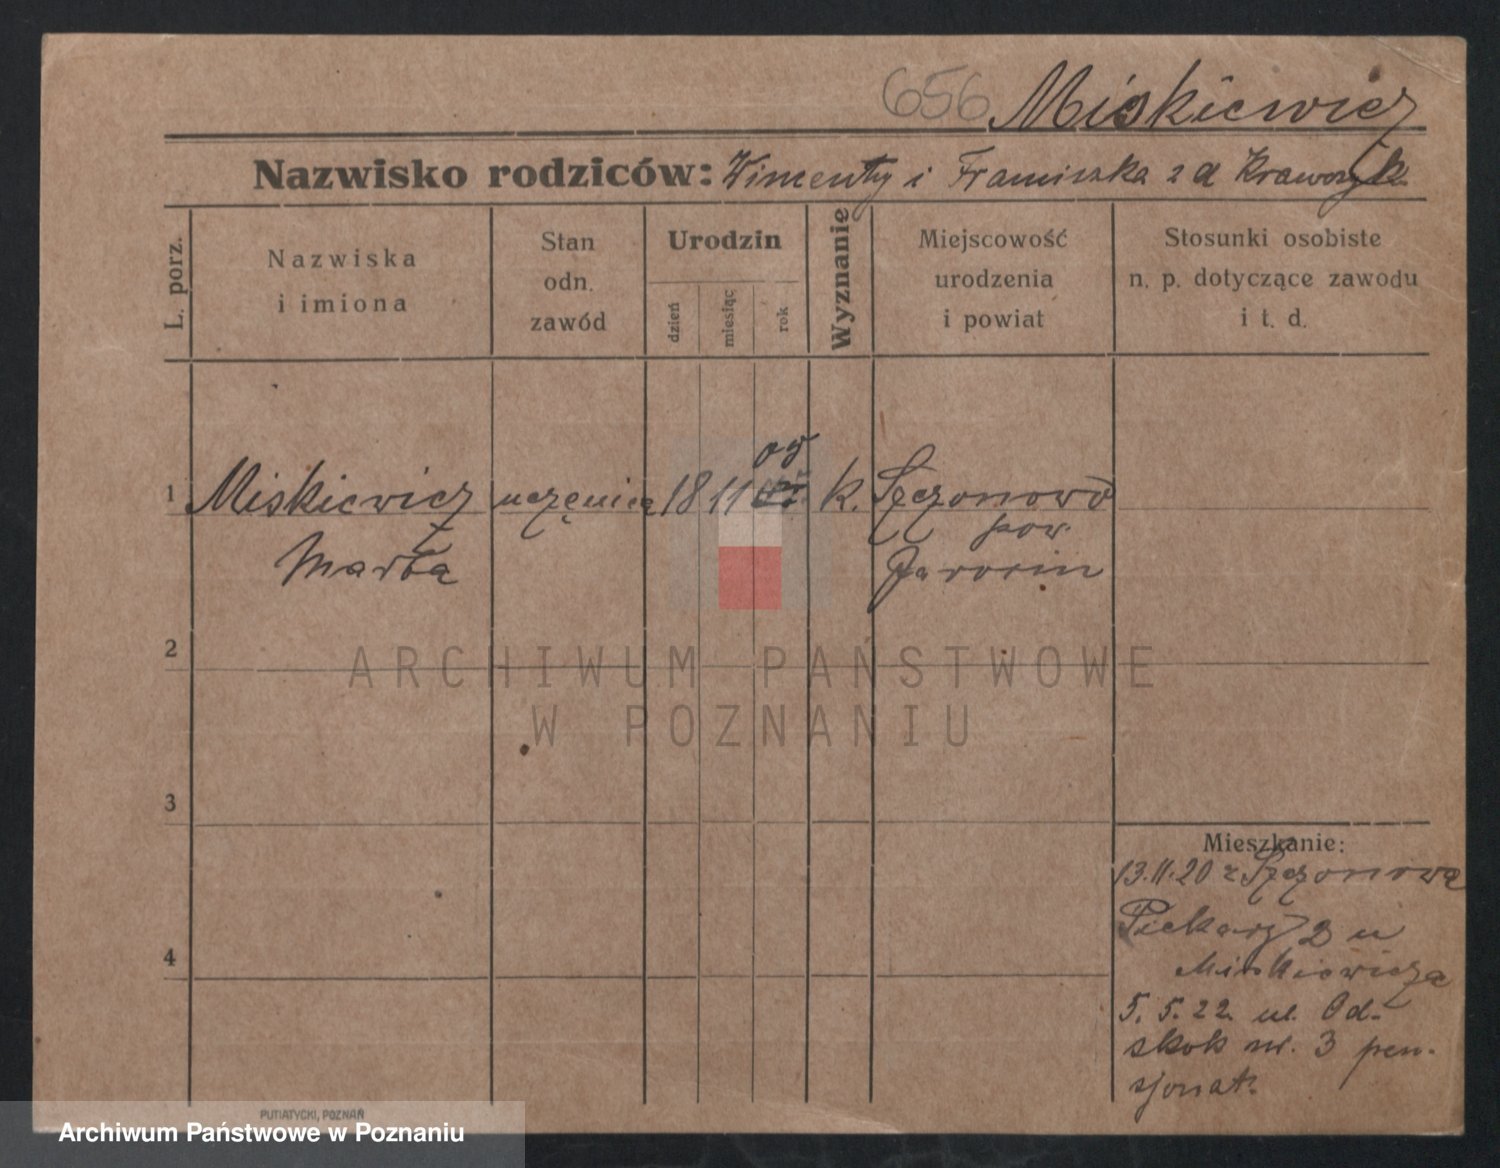 656 Miskiewicz
Nazwisko rodziców: Wincenty i Franciszka z d Krawczyk
L. porz.
Nazwiska
i imiona
Stan
odn.
zawód
Urodzin
dzień
miesiąc
rok
Wyznanie
Miejscowość
urodzenia
i powiat
Stosunki osobiste
n. p. dotyczące zawodu
i t. d.
09
1 Miskiewicz uczęnica 18 11 k. Szczonowo
pow.
Marta Jarocin
2
ARCHIWUM PAŃSTWOWE
W POZNANIU
3
Mieszkanie:
13.11.20 z Szczonowa
Piekary 2 u
Miskiewicza
4
5. 5. 22. ul. Od-
skok nr. 3 pen-
sjonat.
PUTIATYCKI, POZNAŃ
Archiwum Państwowe w Poznaniu